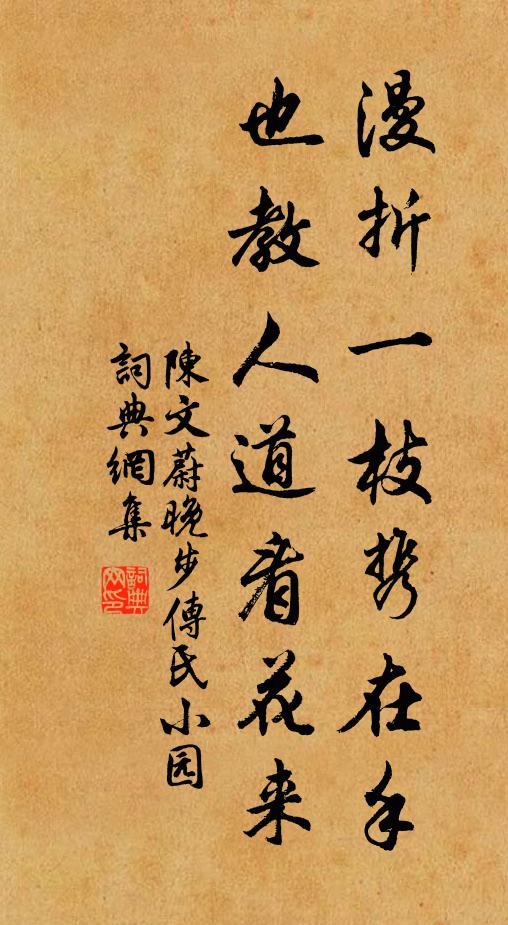 漫折一枝携在手
也教人道看花来
陳文蔚晚步傅氏小园
詞典網集
詞典网印